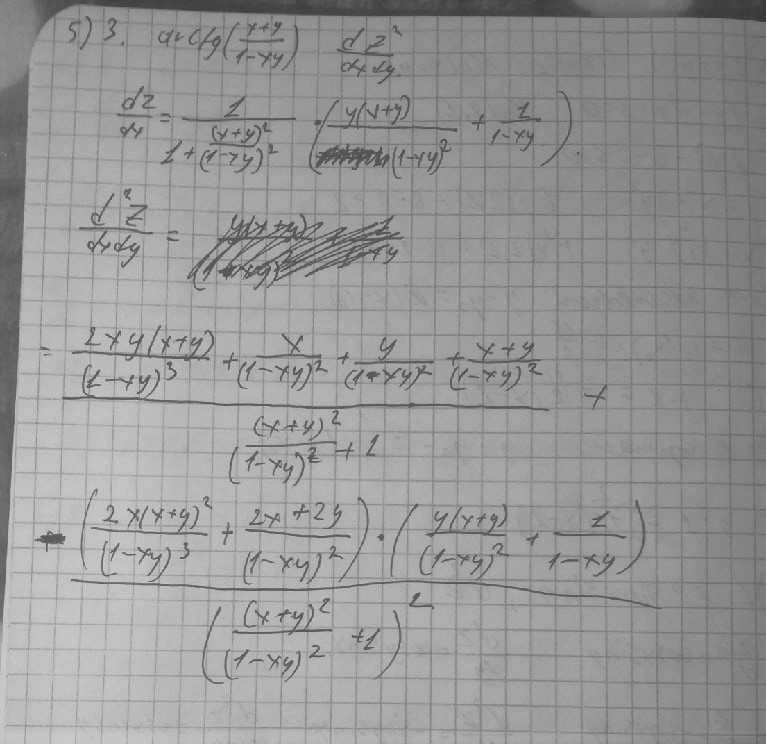 5) 3. arctg((x+y)/(1-xy)) dz²/dxdy
dz/dx = 1/(1+(x+y)²/(1-xy)²) · (y(x+y)/(1-xy)² + 1/(1-xy)).
d²z/dxdy =
= (2xy(x+y)/(1-xy)³ + x/(1-xy)² + y/(1-xy)² + (x+y)/(1-xy)²)/((x+y)²/(1-xy)² + 1) +
(2x(x+y)²/(1-xy)³ + (2x+2y)/(1-xy)²) · (y(x+y)/(1-xy)² + 1/(1-xy))/((x+y)²/(1-xy)² + 1)²